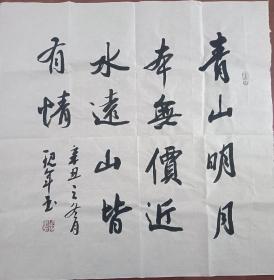 青山明月
本無價近
水遠山皆
有情
辛丑之冬月